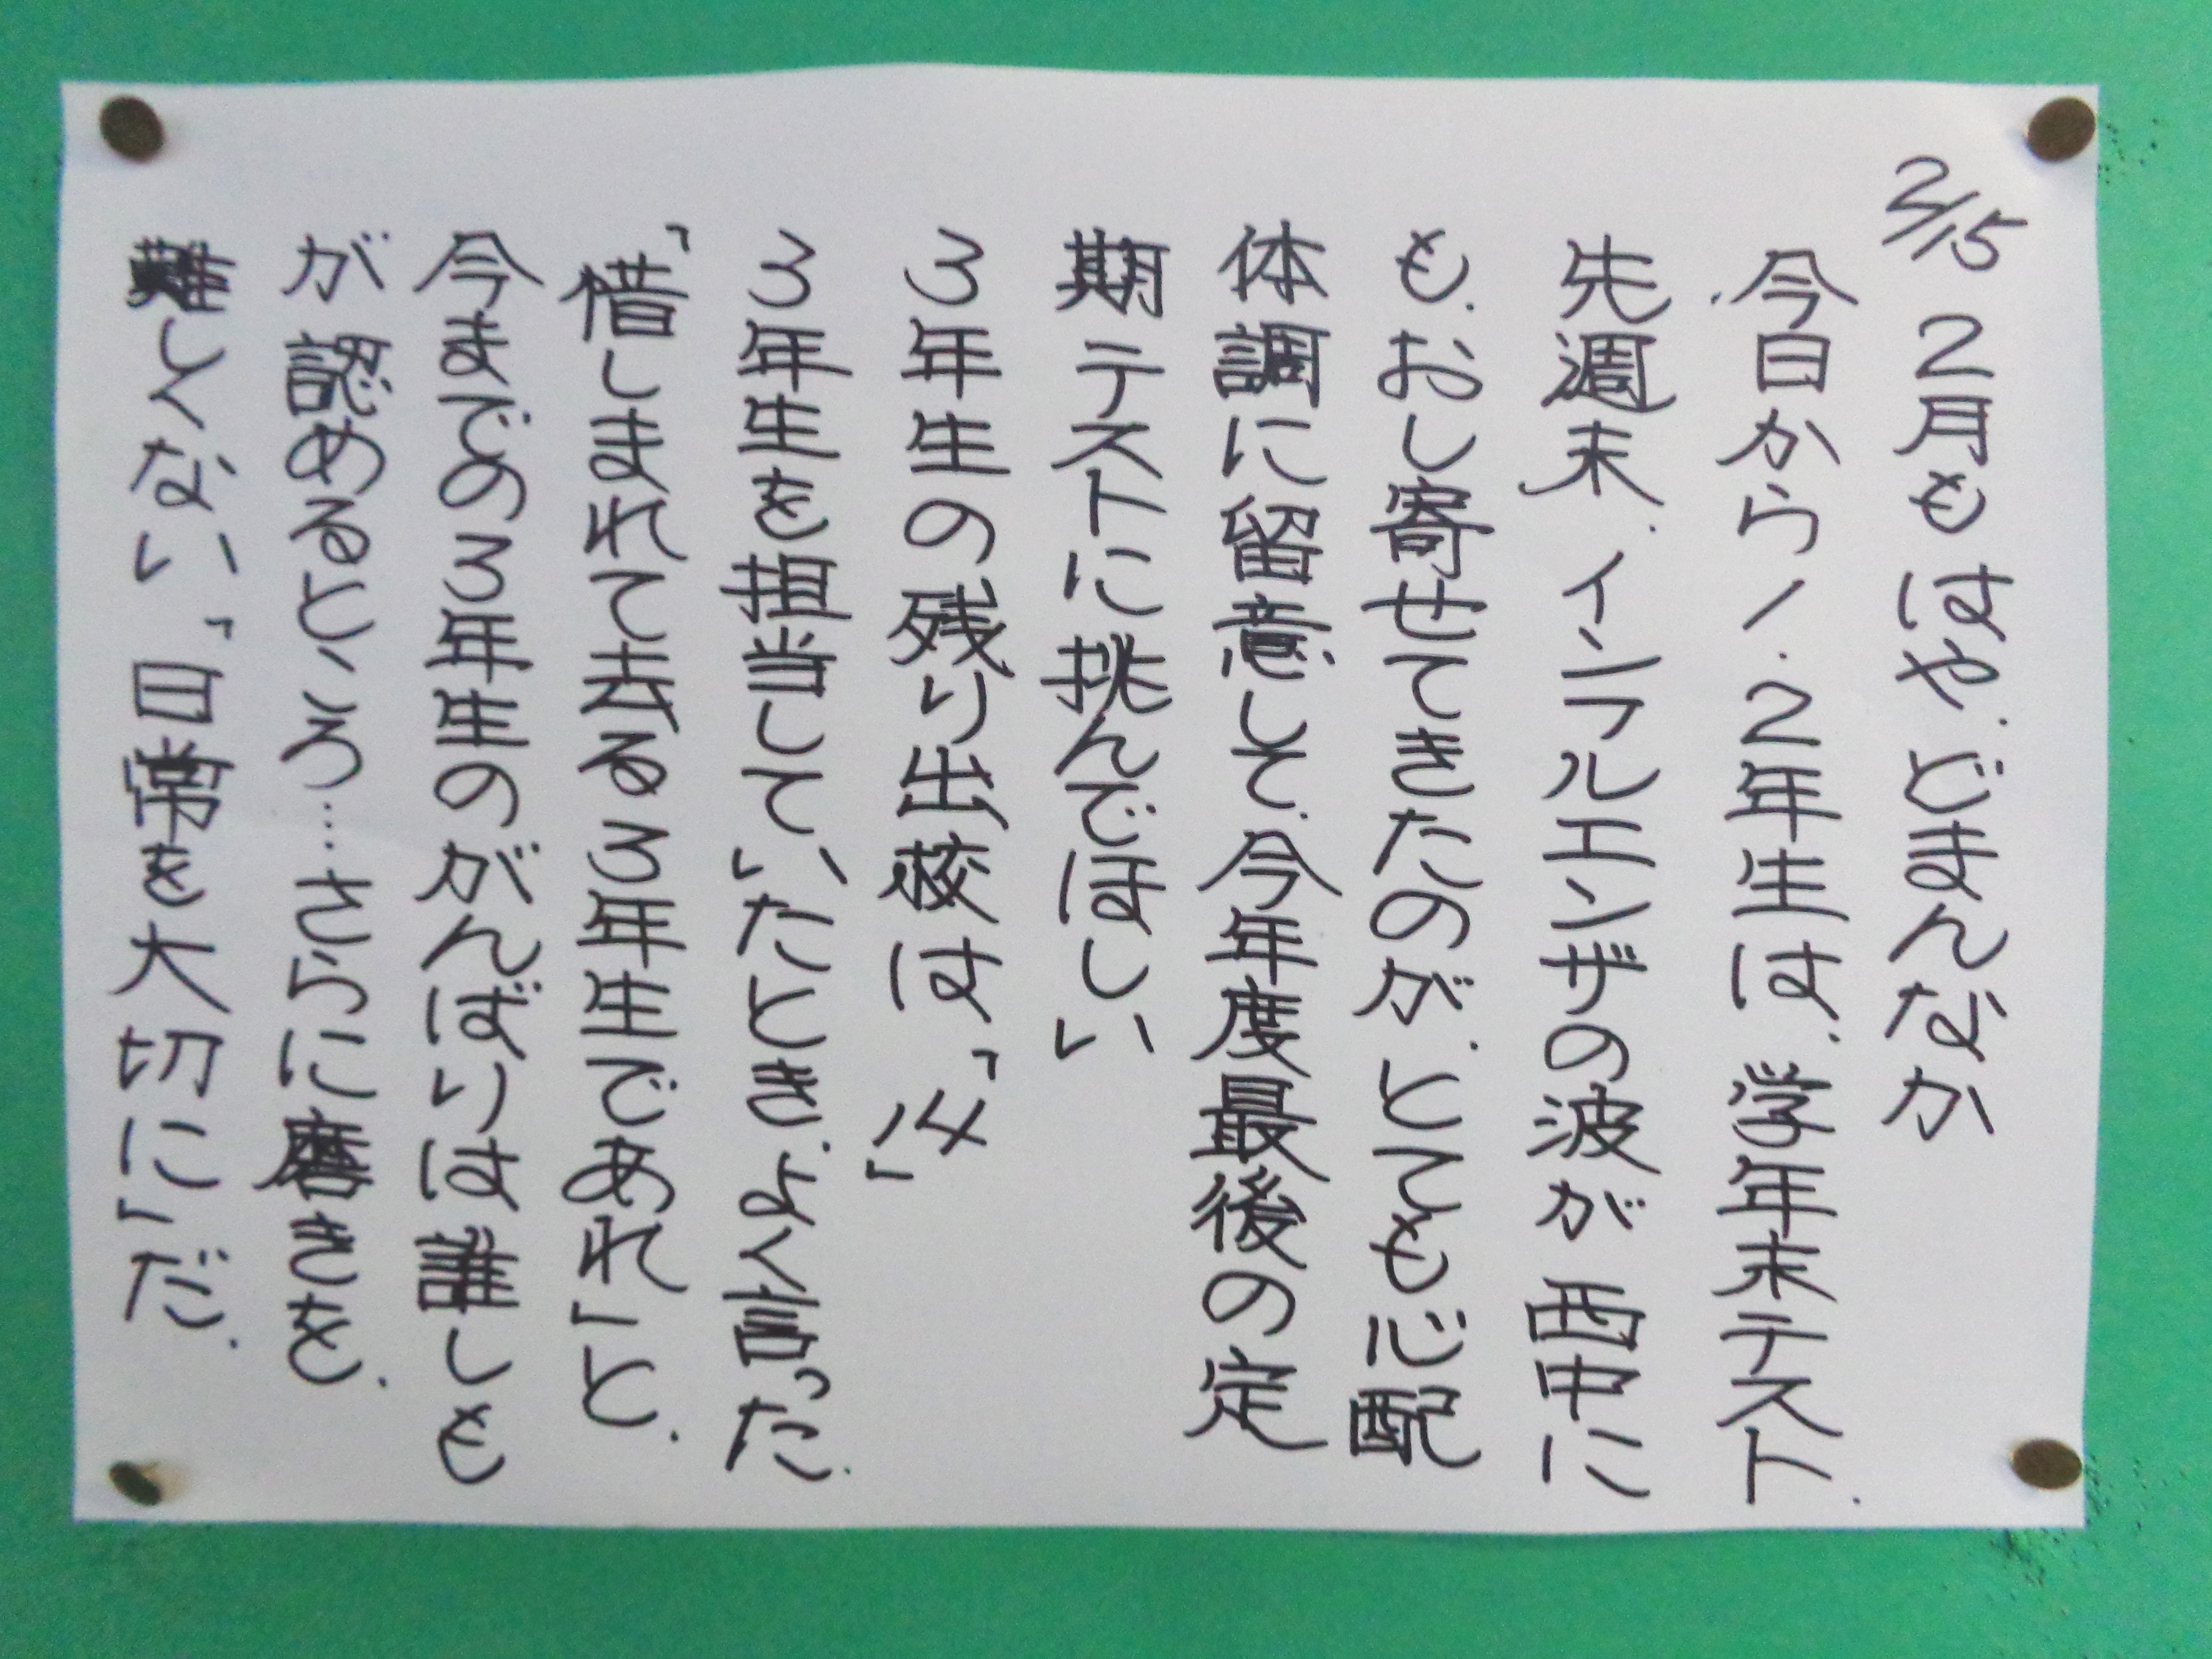 2/15 2月もはや、どまんなか
今日から1、2年生は、学年末テスト、
先週末、インフルエンザの波が西中に
も、おし寄せてきたのが、とても心配
体調に留意して、今年度最後の定
期テストに挑んでほしい
3年生の残り出校は、「14」
3年生を担当していたとき、よく言った、
「惜しまれて去る3年生であれ」と、
今までの3年生のがんばりは誰しも
が認めるところ…さらに磨きを、
難しくない、「日常を大切に」だ、